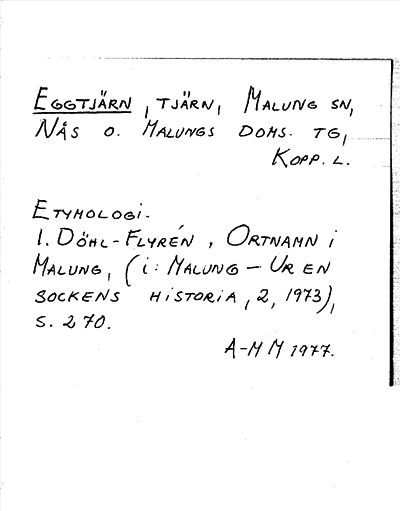 EGGTJÄRN, TJÄRN, MALUNG SN,
NÅS O. MALUNGS DOMS. TG,
KOPP. L.
ETYMOLOGI.
I. DÖHL-FLYRÉN, ORTNAMN I
MALUNG, (i: MALUNG - UR EN
SOCKENS HISTORIA, 2, 1973),
S. 270.
A-M M 1977.